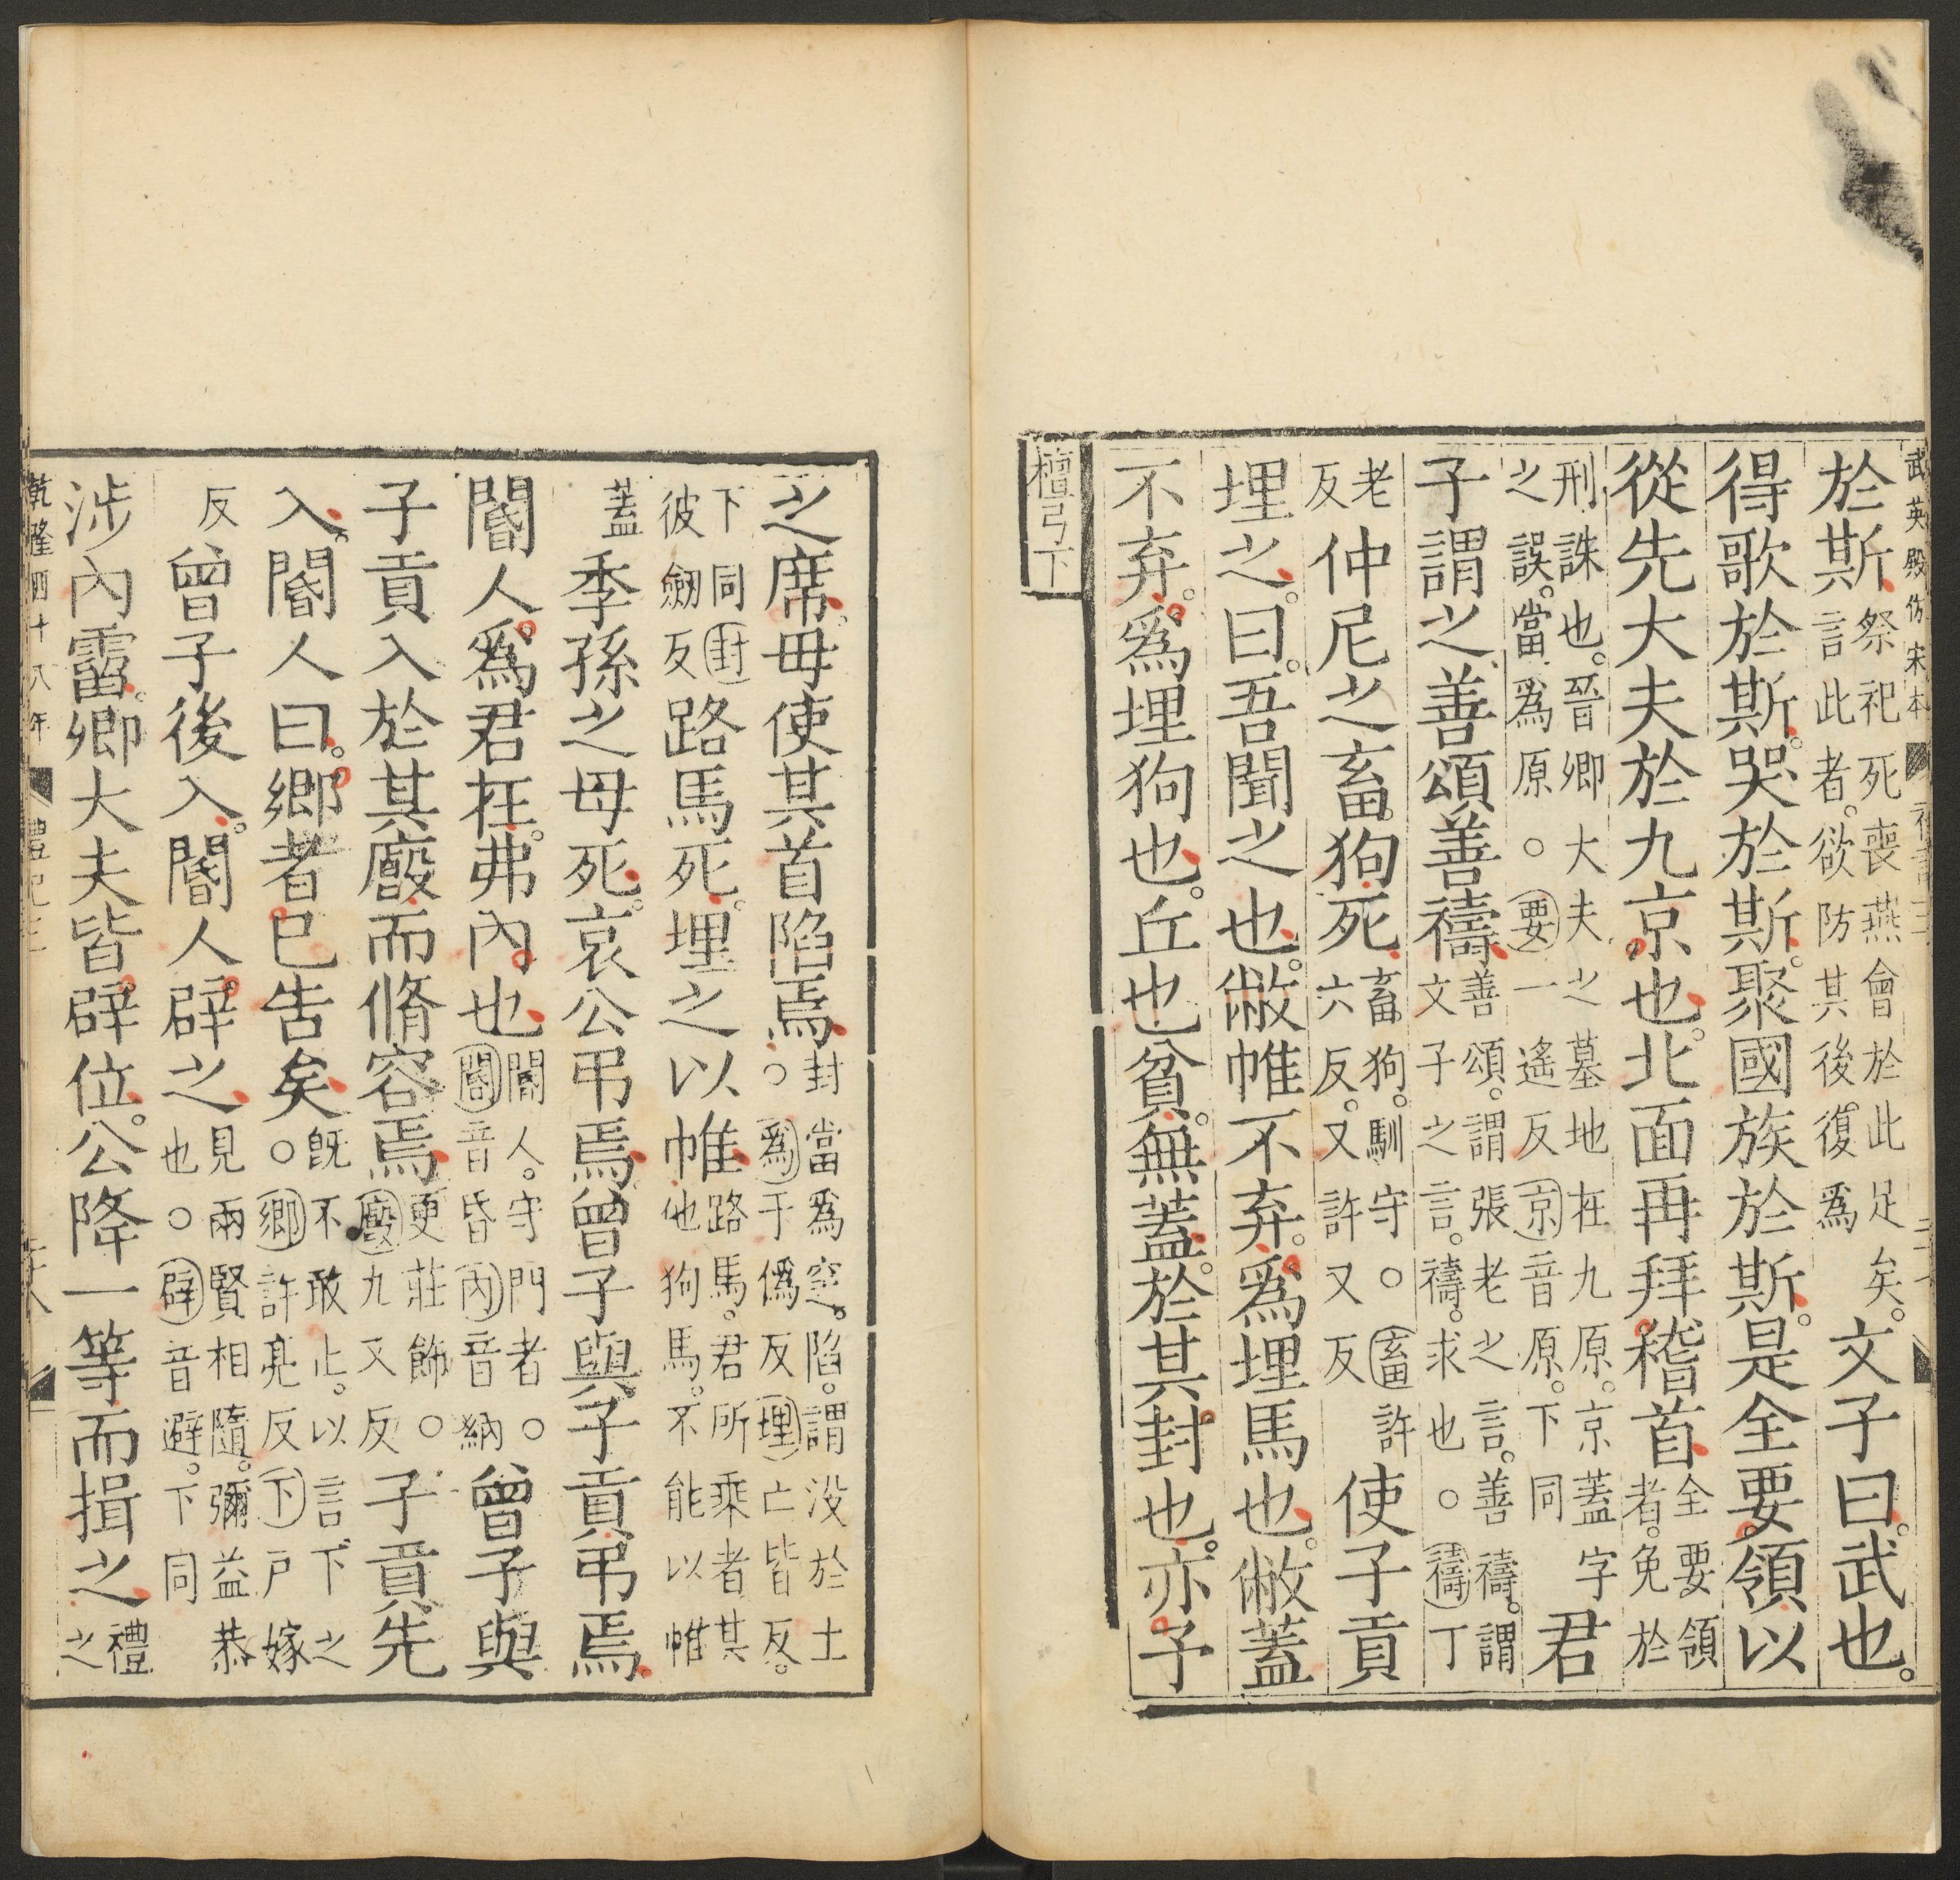 武英殿仿宋本
於斯祭祀死喪燕會於此足矣。言此者。欲防其後。復爲文子曰。武也。
得歌於斯。哭於斯。聚國族於斯。是全要領以
從先大夫於九京也。北面再拜稽首全要領者。免於
刑誅也。晉卿大夫之墓地在九原。京蓋字之誤。當爲原○要一遙反京音原。下同君
子謂之善頌善禱善頌。謂張老之言。善禱。謂文子之言。禱。求也○禱丁
老反仲尼之畜狗死畜狗。馴守○畜許六反。又許又反使子貢
埋之。曰。吾聞之也。敝帷不弃。爲埋馬也。敝蓋
不弃。爲埋狗也。丘也貧。無蓋。於其封也。亦予
檀弓下
之席。毋使其首陷焉。封當爲窆。陷。謂没於土○爲于僞反埋亡皆反。
下同封彼劔反路馬死。埋之以帷路馬。君所乘者其他狗馬。不能以帷
蓋季孫之母死。哀公弔焉。曾子與子貢弔焉。
閽人。爲君在。弗內也閽人。守門者○閽音昏內音納曾子與
子貢入於其廄而脩容焉更莊飾○廄九又反子貢先
入。閽人曰。鄉者已告矣。既不敢止。以言下之○鄉許亮反下戸嫁
反曾子後入。閽人辟之見兩賢相隨。彌益恭也○辟音避。下同
涉內霤。卿大夫皆辟位。公降一等而揖之禮之
乾隆四十八年
禮記三